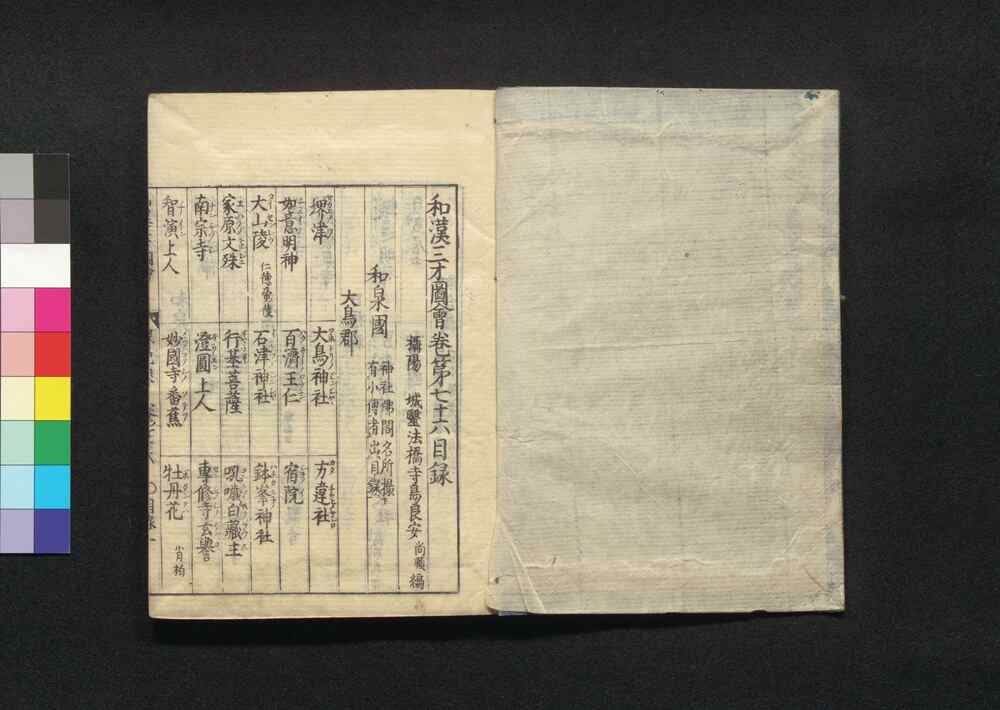 和漢三才圖會卷第七十六目録
攝陽 城醫法橋寺島良安尚順編
和泉國 神社佛閣名所撮
有小傳者出目録
大鳥郡
堺津 大鳥神社 方違社
如意明神 百濟王仁 宿院
大山陵 仁德帝陵 石津神社 鉢峯神社
家原文殊 行基菩薩 吼噦白藏主
南宗寺 澄圓上人 專修寺玄譽
智演上人 妙國寺番蕉 牡丹花 肖柏